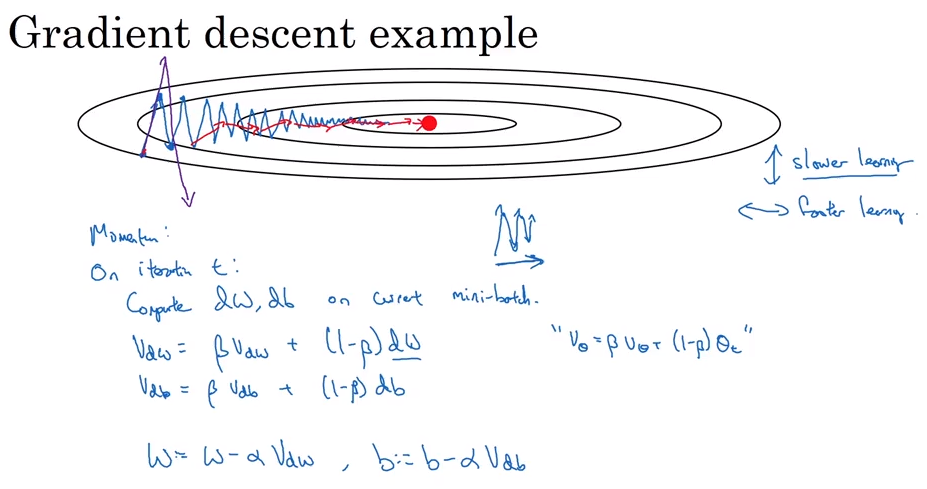 Gradient descent example
↕ slower learning
↔ faster learning.
Momentum:
On iteration t:
Compute dW, db on current mini-batch.
Vdw = β Vdw + (1-β) dw
"Vθ = β Vθ + (1-β) θt"
Vdb = β Vdb + (1-β) db
W := W - α Vdw , b := b - α Vdb